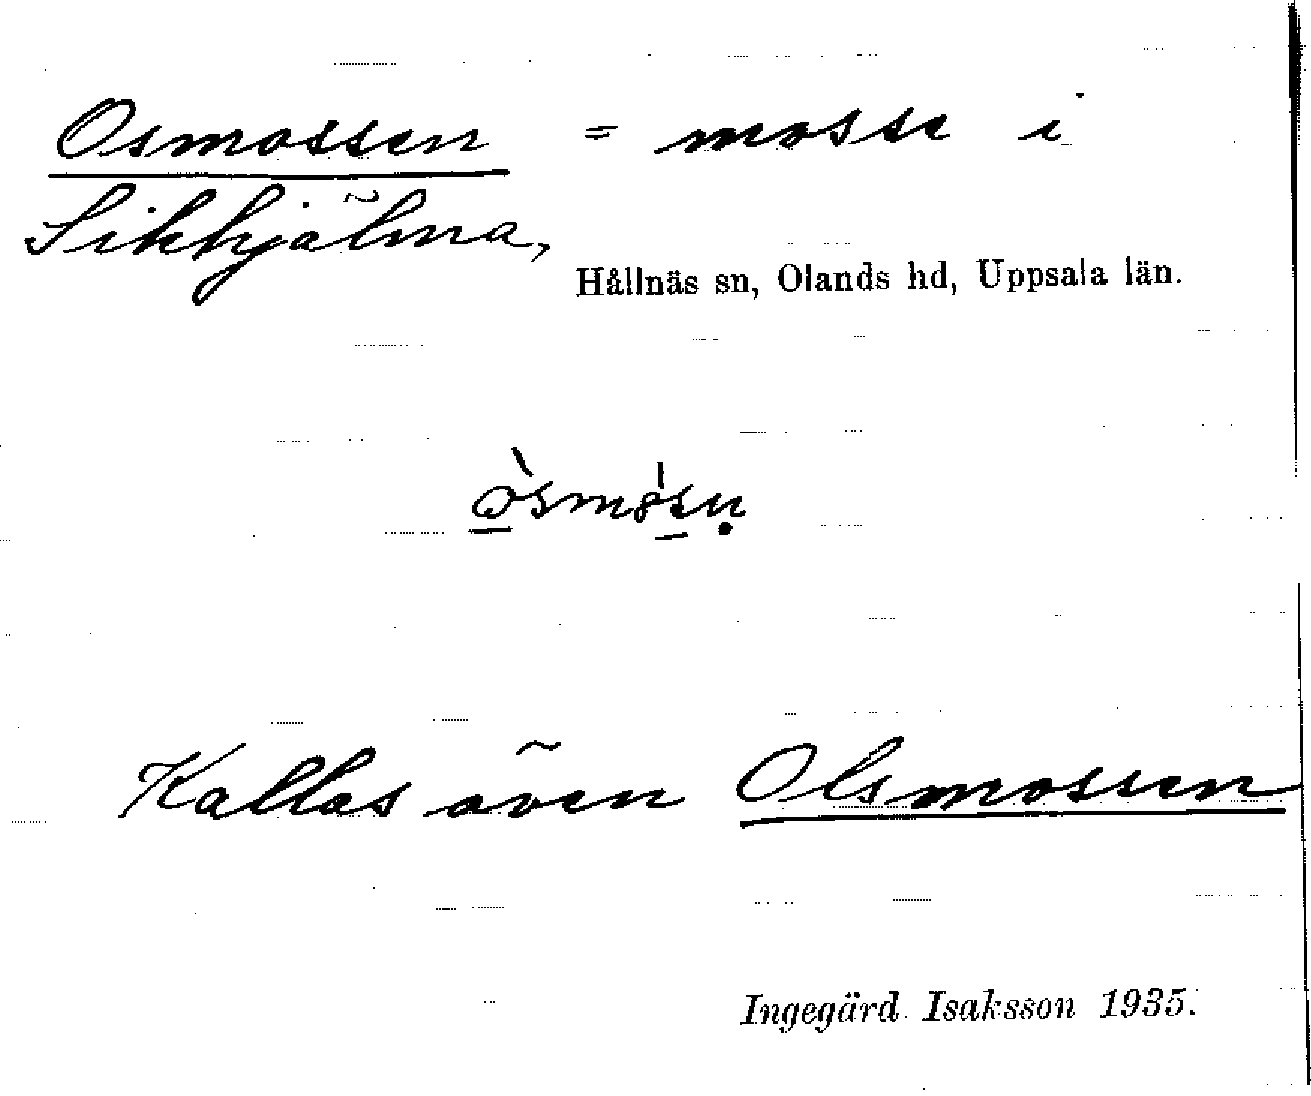 Osmossen = mosse i
Sikhjälma,
Hållnäs sn, Olands hd, Uppsala län.
Kallas även Olsmossen
Ingegärd Isaksson 1935.